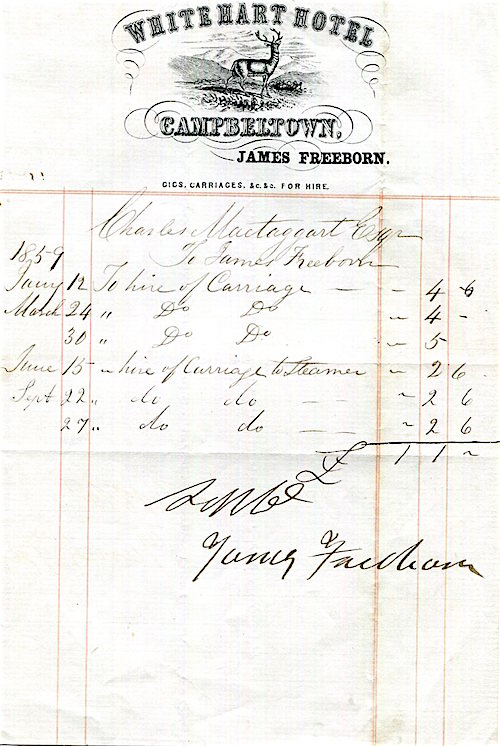 WHITE HART HOTEL
CAMPBELTOWN,
JAMES FREEBORN.
GIGS, CARRIAGES, &c. &c. FOR HIRE.
Charles Mactaggart Esqr
To James Freeborn
1859
Jany 12 To hire of Carriage — " 4 6
March 24 " Do Do " 4 -
30 " Do Do " 5
June 15 " hire of Carriage to Steamer " 2 6
Sept 22 " do do — " 2 6
27 " do do — " 2 6
£ 1 1 "
James Freeborn